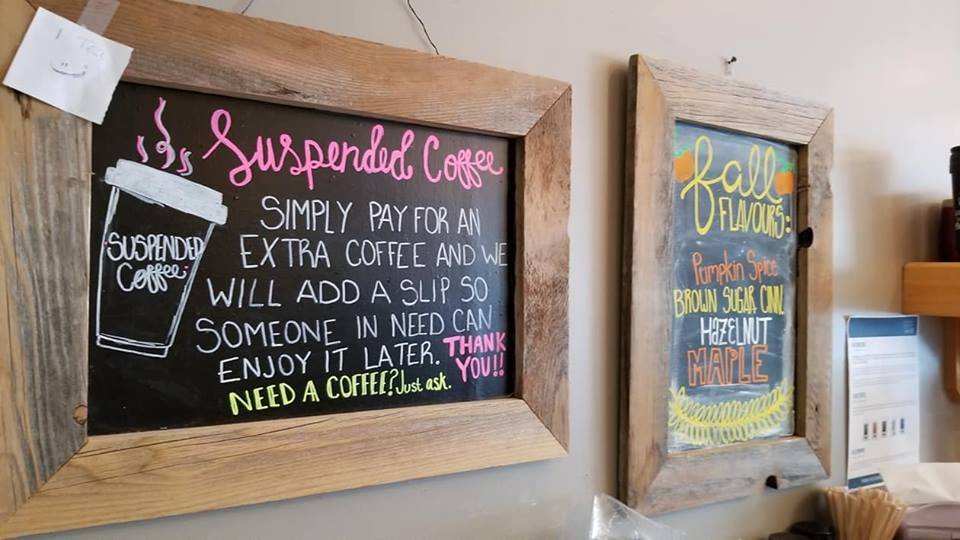 Suspended Coffee
SUSPENDED
Coffee
SIMPLY PAY FOR AN
EXTRA COFFEE AND WE
WILL ADD A SLIP SO
SOMEONE IN NEED CAN
ENJOY IT LATER.
THANK
YOU!!
NEED A COFFEE? Just ask.
fall
FLAVOURS:
Pumpkin Spice
BROWN SUGAR CINN.
HAZELNUT
MAPLE